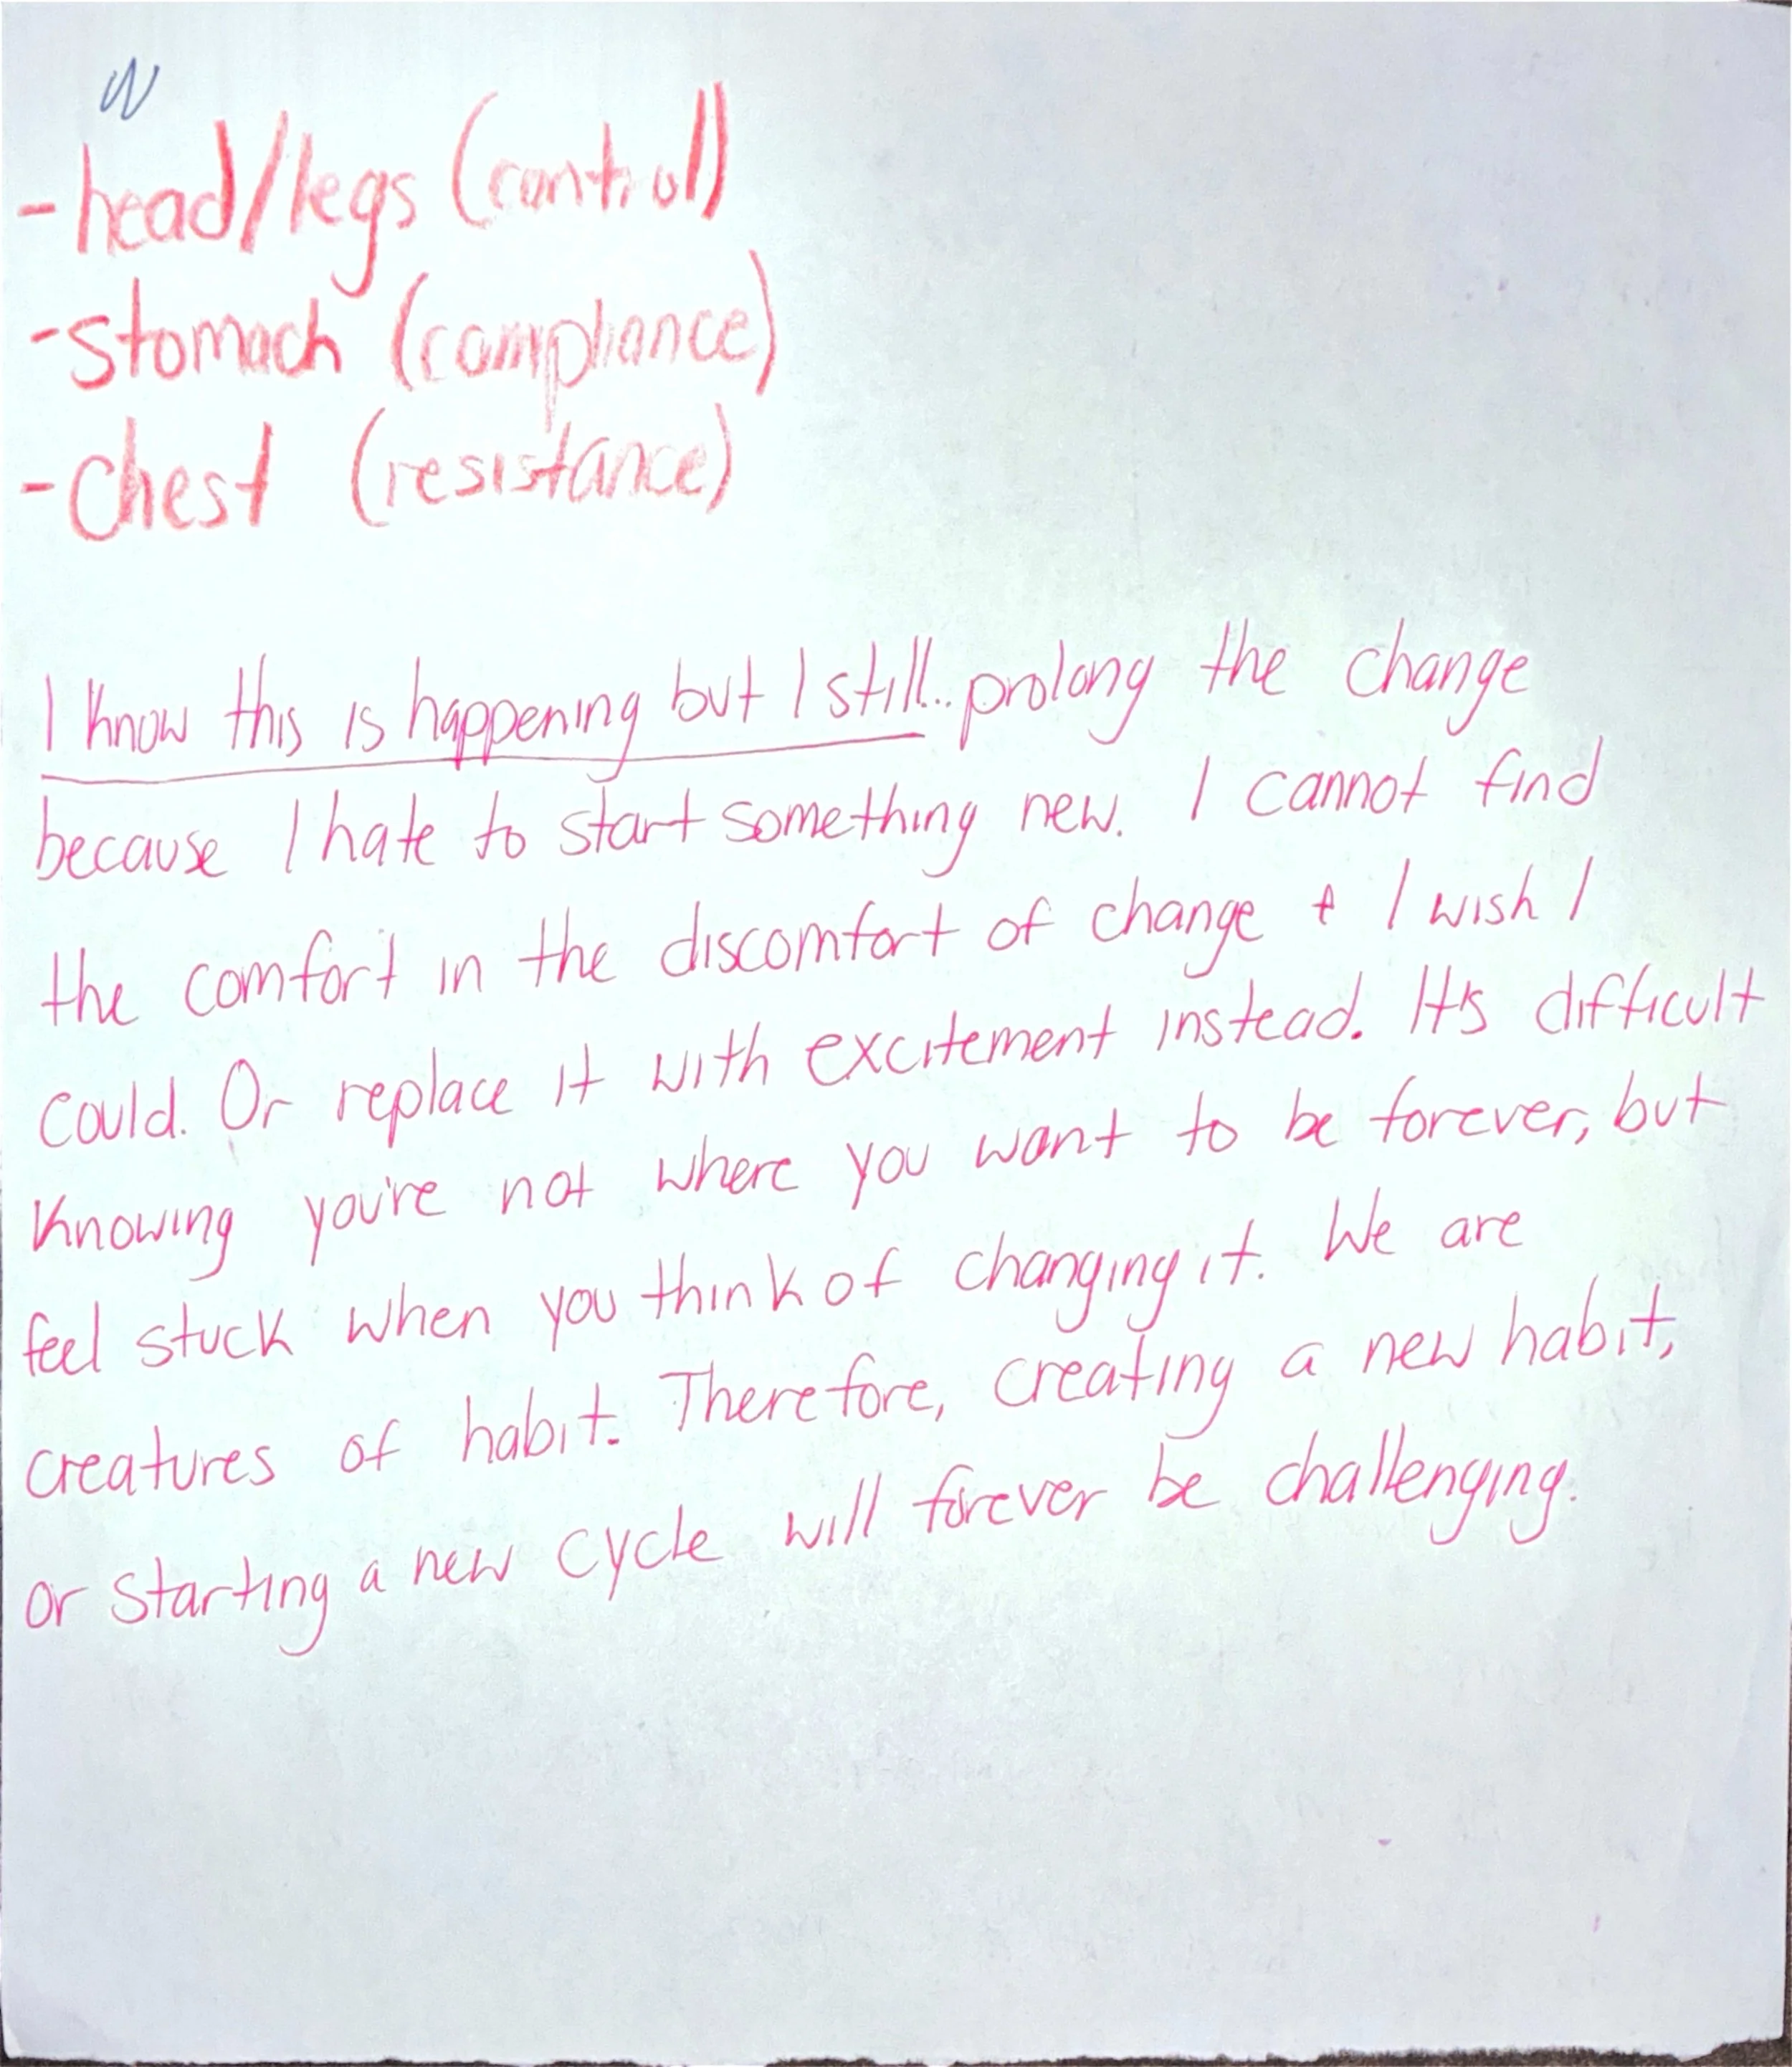 - head/legs (control)
- stomach (compliance)
- chest (resistance)
I know this is happening but I still... prolong the change
because I hate to start something new. I cannot find
the comfort in the discomfort of change + I wish I
could. Or replace it with excitement instead. It's difficult
knowing you're not where you want to be forever, but
feel stuck when you think of changing it. We are
creatures of habit. Therefore, creating a new habit,
or starting a new cycle will forever be challenging.